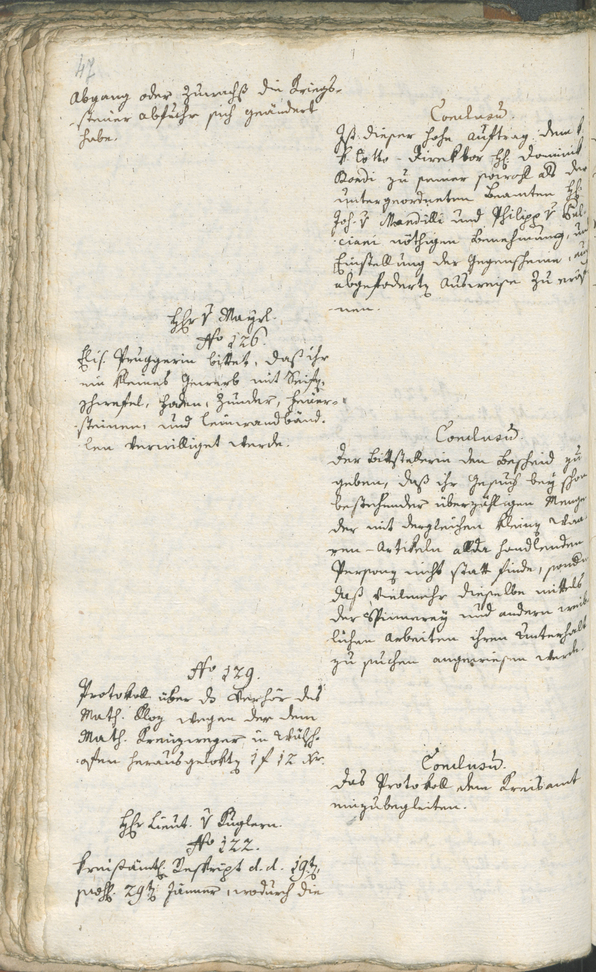 47
Abgang oder Zuwachß die Kriegs-
steuer abfuhr sich geändert
habe.
Conclusū.
Ist dieser hohe Auftrag dem k
k Cotto-Direktor H: Dominik
Bordi zu seiner sowohl als der
untergeordneten Beamten H:
Joh. v Mendilli und Philipp v
ciani nöthigen Benehmung, un
Einstellung der Gegenscheine, auf
abgefoderte Ausweise zu eröf
nen.
Hr v Mayrl.
No 126.
Elis. Pruggerin bittet, daß ihr
ein kleines Gewerb mit Seife,
Schwefel, Faden, Zunder, Feuer-
steinen, und Leinwandbänd-
len verwilliget werde.
Conclusū.
Der Bittstellerin den Bescheid zu
geben, daß ihr Gesuch bey schon
bestehender überzähligen Menge
der mit dergleichen kleinen Waa
ren-Artikeln allda handlenden
Personen nicht statt finde, sonde
daß vielmehr dieselbe mittels
der Spinnerey und andern weib
lichen Arbeiten ihren Unterhalt
zu suchen angewiesen werde.
No 129.
Protokoll über ds Verhör des
Math. Kloz wegen der dem
Math. Kreuzweger in Mühlh-
herausgelokte 1 f 12 Xr.
Conclusū.
das Protokoll dem Kreisamt
einzubegleiten.
Hr Lieut. v Kuglern.
No 122.
Kreisämtl. Reskript d.d. 19t,
29t Jänner, wodurch die